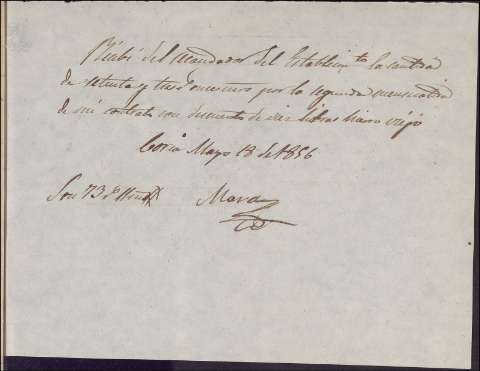 Recibí del Mandador del Establecim.to la cantid.
de setenta y tres por la segunda mensualid.
de mi contrata con descuento de diez libras hierro viejo
Mayo 13 de 1856
Son 73 Mora